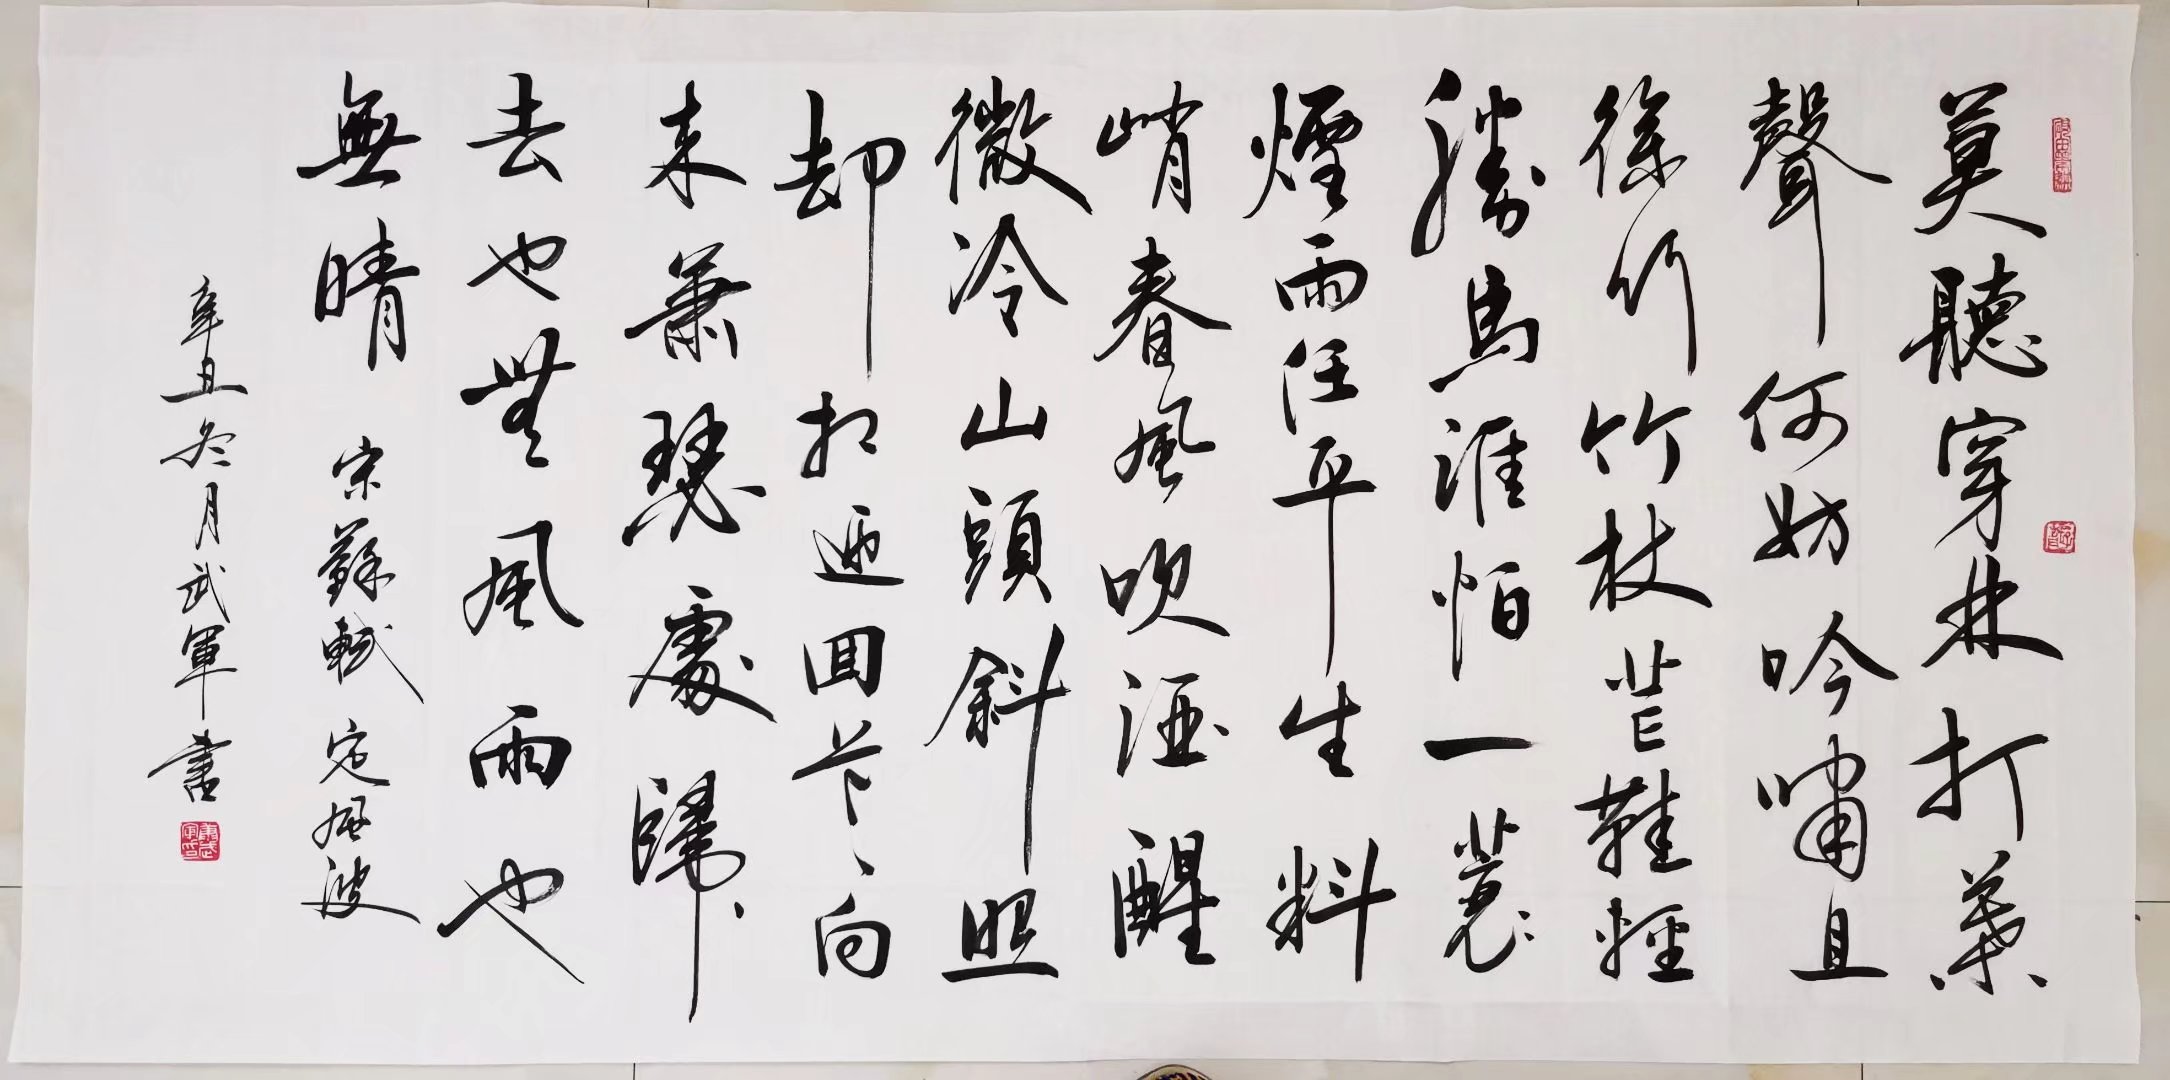 莫聽穿林打葉
聲何妨吟嘯且
徐行竹杖芒鞋輕
勝馬誰怕一蓑
煙雨任平生料
峭春風吹酒醒
微冷山頭斜照
却相迎回首向
来蕭瑟處歸
去也無風雨也
無晴 宋蘇軾定風波
辛丑冬月武軍書